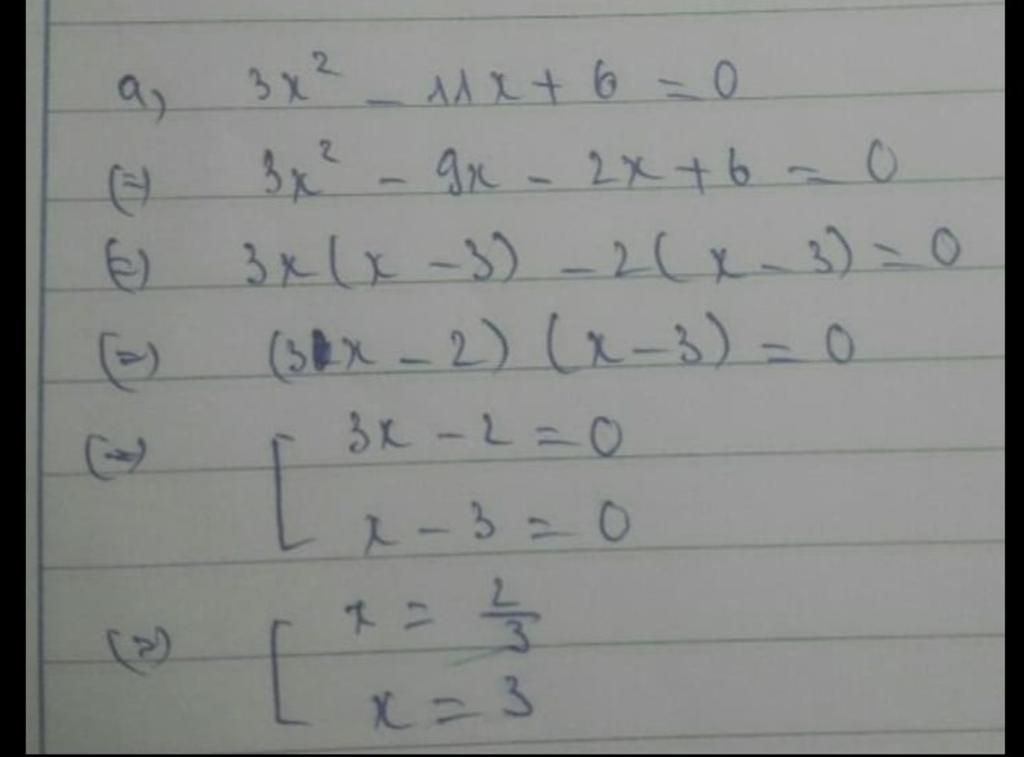 a, 3x² - 11x + 6 = 0
(=) 3x² - 9x - 2x + 6 = 0
(=) 3x(x - 3) - 2(x - 3) = 0
(=) (3x - 2) (x - 3) = 0
(=) [ 3x - 2 = 0
x - 3 = 0
(=) [ x = 2/3
x = 3